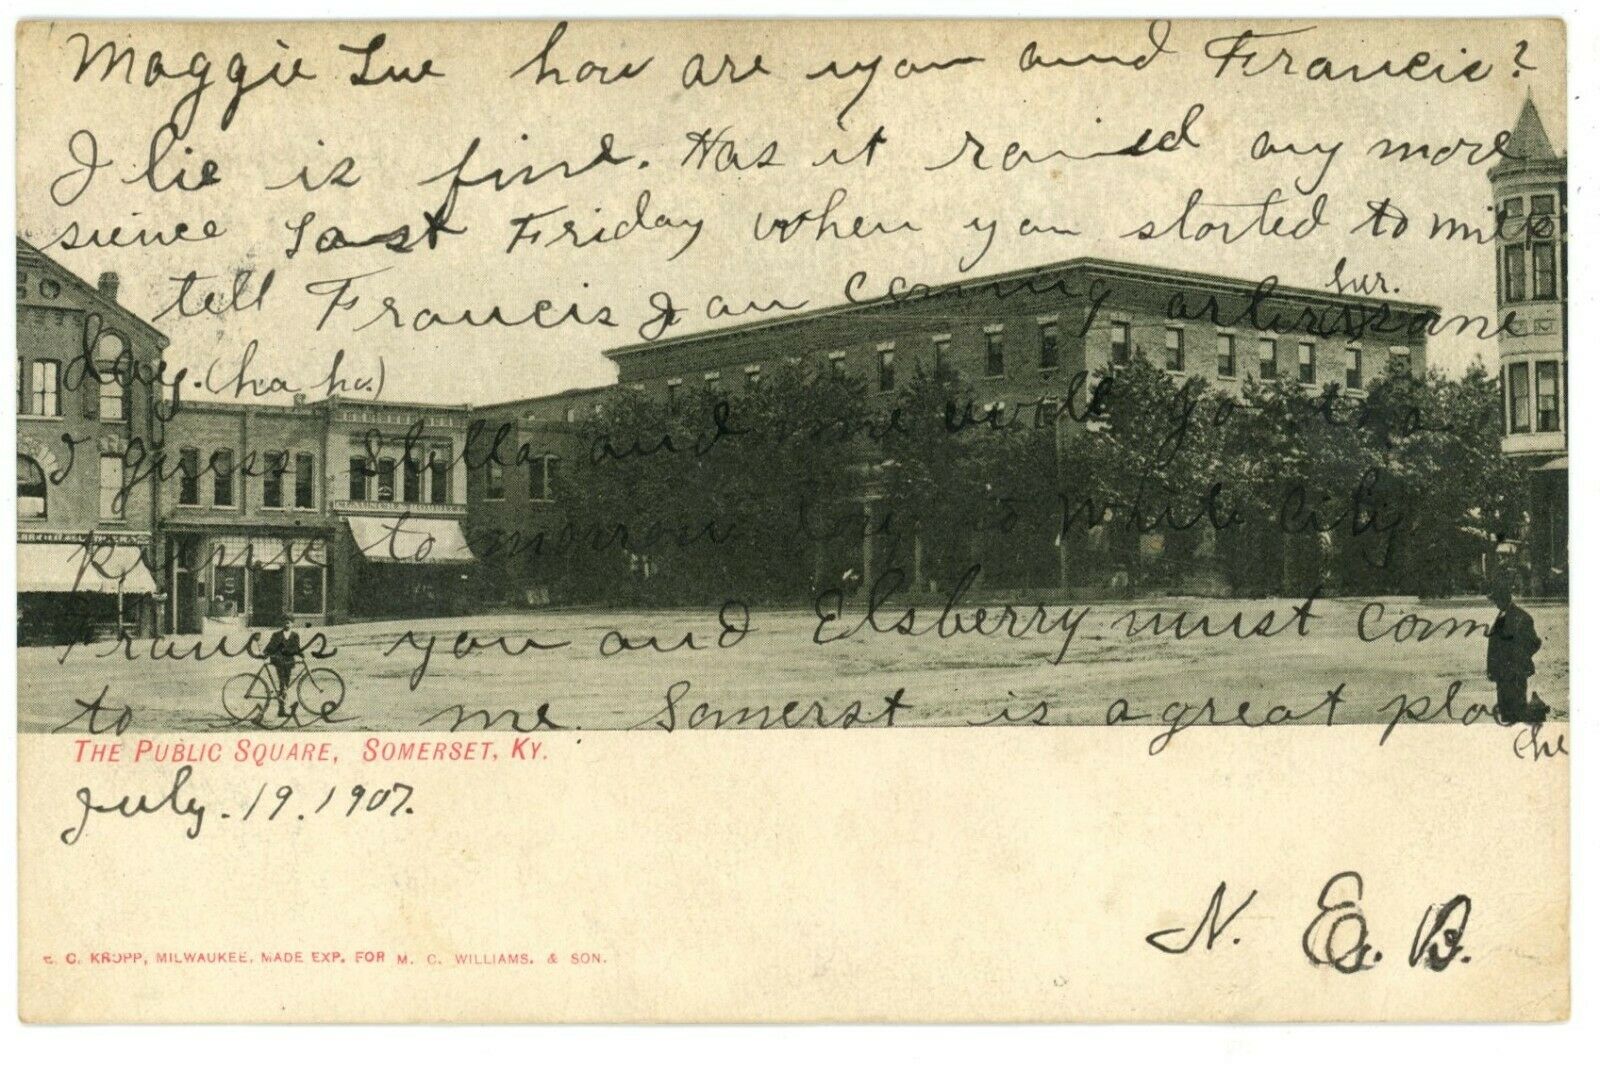 Maggie Sue how are you and Francis?
I lie is fine. Has it rained any more
sience last Friday when you started to milk
tell Francis I am coming sur. some
day. (ha ha.)
I guess Stella and me will go to a
picnic to morrow to White City
Francis you and Elsberry must come
to see me. Somerst is a great place
(he
THE PUBLIC SQUARE, SOMERSET, KY.
July. 19. 1907.
N. E. B.
E. C. KROPP, MILWAUKEE, MADE EXP. FOR M. C. WILLIAMS. & SON.